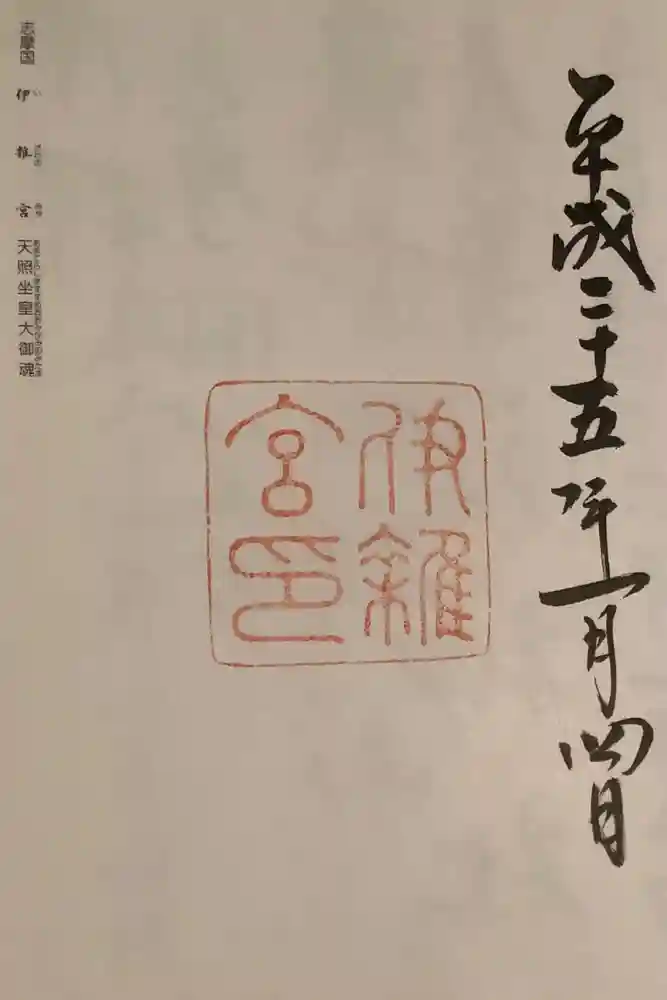 平成二十五年一月四日
伊雑
宮印
志摩国 伊雑宮 天照坐皇大御魂